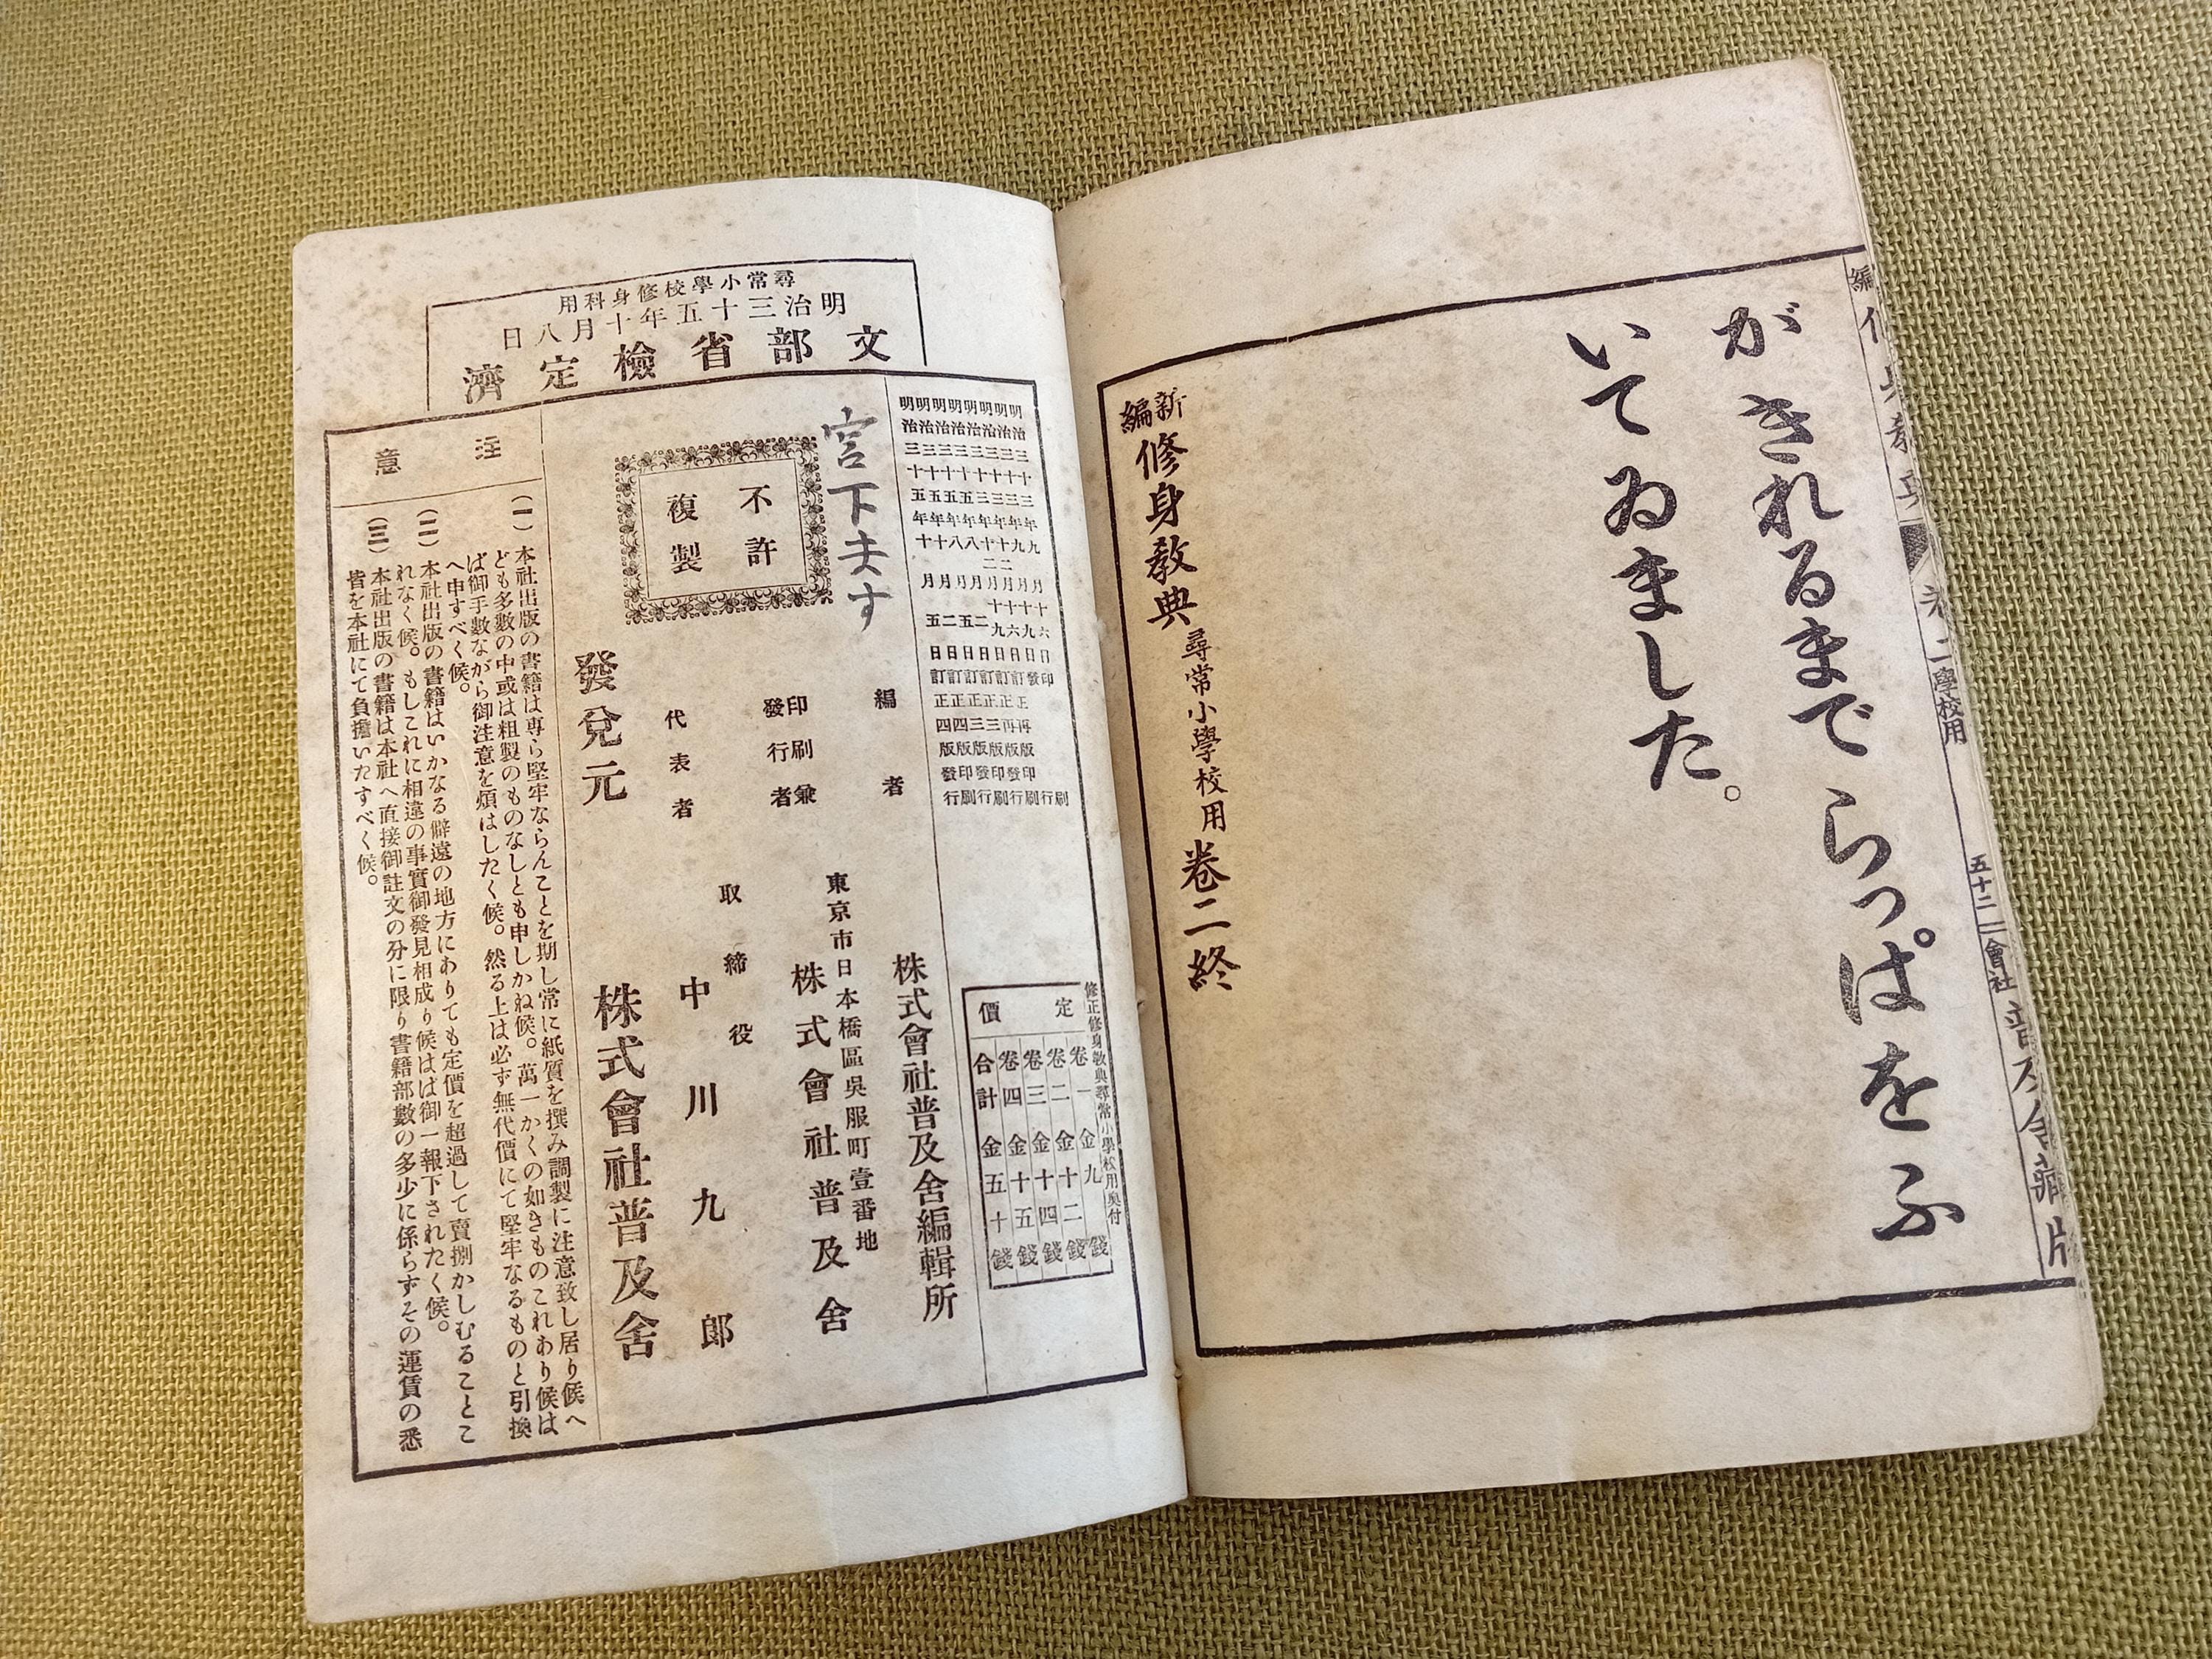 がきれるまでらっぱをふ
いてゐました。
新編 修身教典 尋常小學校用 卷二終
尋常小學校修身科用
明治三十五年十月八日
文部省檢定濟
修正修身教典尋常小學校用奥付
定價
卷一 金九錢
卷二 金十二錢
卷三 金十四錢
卷四 金十五錢
合計 金五十錢
明治三十三年九月十六日印刷
明治三十三年九月十九日發行
明治三十三年十二月十六日訂正再版印刷
明治三十三年十二月十九日訂正再版發行
明治三十五年八月二日訂正三版印刷
明治三十五年八月五日訂正三版發行
明治三十五年十月二日訂正四版印刷
明治三十五年十月五日訂正四版發行
編者 株式會社普及舍編輯所
東京市日本橋區吳服町壹番地
印刷兼發行者 株式會社普及舍
取締役
代表者 中川九郎
發兌元 株式會社普及舍
不許
複製
宮下
注意
(一)本社出版の書籍は専ら堅牢ならんことを期し常に紙質を撰み調製に注意致し居り候へ
ども多數の中或は粗製のものなしとも申しかね候。萬一かくの如きものこれあり候は
ば御手數ながら御注意を煩はしたく候。然る上は必ず無代價にて堅牢なるものと引換
へ申すべく候。
(二)本社出版の書籍はいかなる僻遠の地方にありても定價を超過して賣捌かしむることこ
れなく候。もしこれに相違の事實御發見相成り候はば御一報下されたく候。
(三)本社出版の書籍は本社へ直接御註文の分に限り書籍部數の多少に係らずその運賃の悉
皆を本社にて負擔いたすべく候。